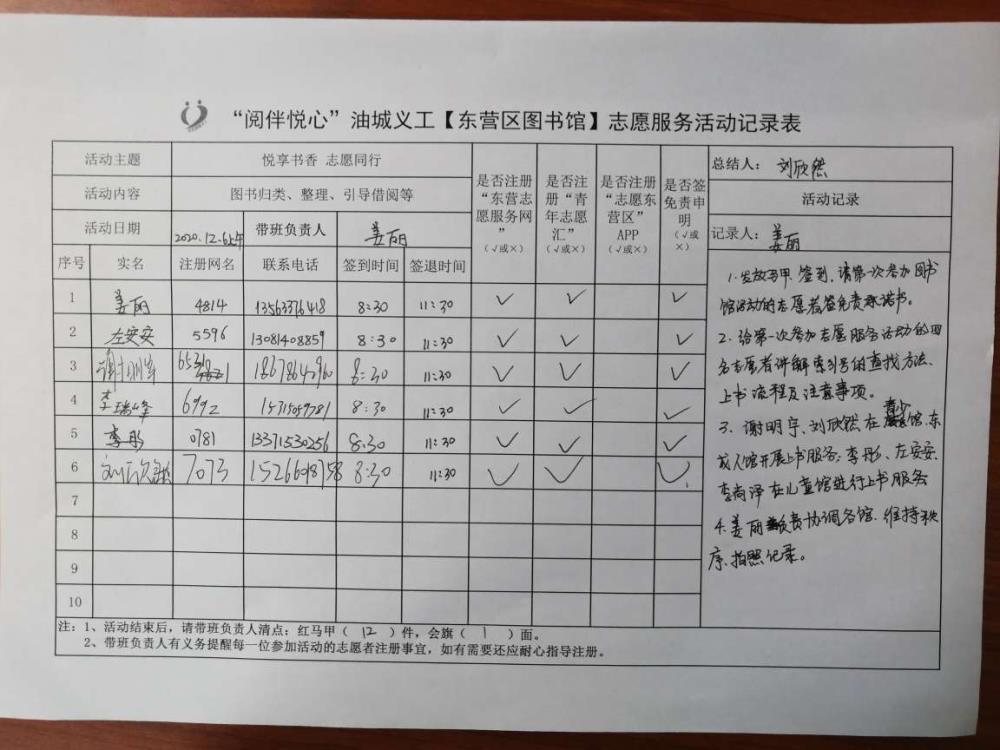 “阅伴悦心”油城义工【东营区图书馆】志愿服务活动记录表
活动主题 悦享书香 志愿同行
活动内容 图书归类、整理、引导借阅等
活动日期 2020.12.6上午 带班负责人 姜丽
是否注册“东营志愿服务网”（√或×）
是否注册“青年志愿汇”（√或×）
是否注册“志愿东营区”APP（√或×）
是否签免责申明（√或×）
序号 实名 注册网名 联系电话 签到时间 签退时间
1 姜丽 4814 13563376418 8:30 11:30 ✓ ✓ ✓
2 左安安 5596 13081408859 8:30 11:30 ✓ ✓ ✓
3 谢明 8:30 11:30 ✓ ✓ ✓
4 李瑞峰 6992 8:30 11:30 ✓ ✓ ✓
5 李彤 0781 13371530256 8:30 11:30 ✓ ✓ ✓
6 刘欣然 7073 8:30 11:30 ✓ ✓ ✓
7
8
9
10
总结人： 刘欣然
活动记录
记录人： 姜丽
1. 发放马甲、签到、请第一次参加图书
馆活动的志愿者签免责承诺书。
2. 给第一次参加志愿服务活动的四
名志愿者讲解索引号的查找方法、
上书流程及注意事项。
3. 谢明宇、刘欣然在青少馆、东
成人馆开展上书服务；李彤、左安安、
李尚泽在儿童馆进行上书服务
4. 姜丽负责协调各馆、维持秩
序、拍照记录。
注：1、活动结束后，请带班负责人清点：红马甲（ 12 ）件，会旗（ 1 ）面。
2、带班负责人有义务提醒每一位参加活动的志愿者注册事宜，如有需要还应耐心指导注册。